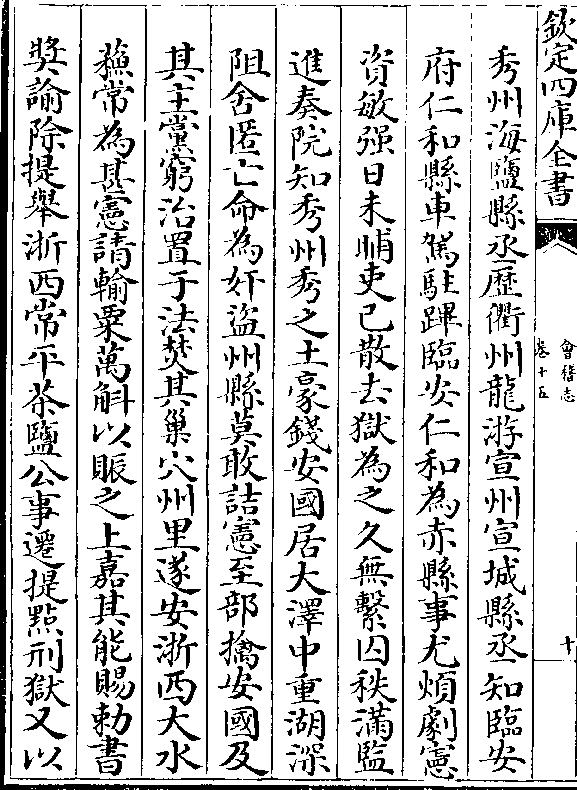 欽定四庫全書
會稽志
卷十五
十
秀州海鹽縣丞歷衢州龍游宣州宣城縣丞知臨安
府仁和縣車駕駐蹕臨安仁和為赤縣事尤煩劇憲
資敏强日未晡吏已散去獄為之久無繫囚秩滿監
進奏院知秀州秀之土豪錢安國居大澤中重湖深
阻舍匿亡命為奸盜州縣莫敢詰憲至部擒安國及
其主黨窮治置于法焚其巢穴州里遂安浙西大水
蘓常為甚憲請輸粟萬斛以賑之上嘉其能賜勅書
奬諭除提舉浙西常平茶鹽公事遷提㸃刑獄又以